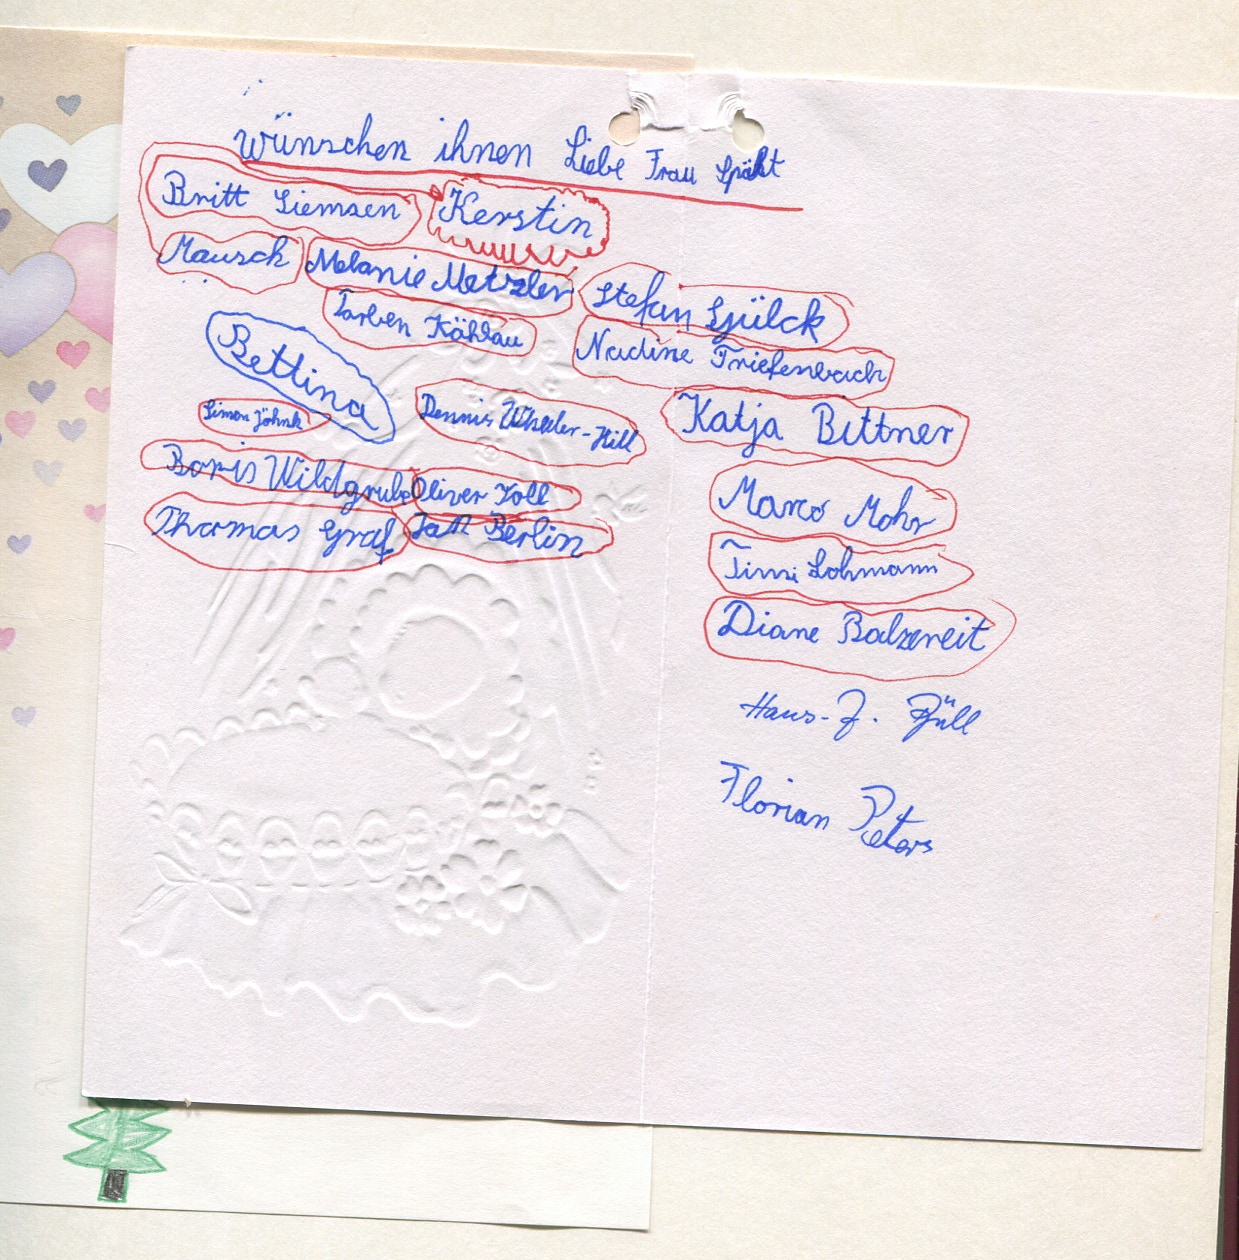 wünschen ihnen Liebe Frau Späht
Britt Siemsen Kerstin
Mausch Melanie Metzler Stefan
Torben Kählau Nadine Triefenbach
Bettina
Simon Jöhnk Dennis Wheeler-Hill Katja Bittner
Boris Wildgrube Oliver Voll Marco Mohr
Thomas Graf Jan Berlin Timi Lohmann
Diane Balzereit
Hans-J. Büll
Florian Peters